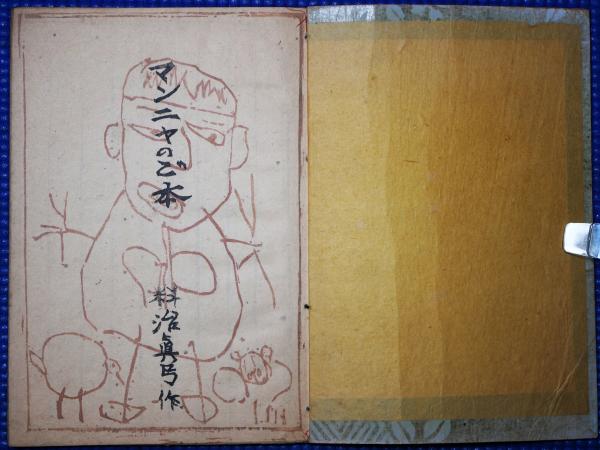 マンニャのご本
料治真弓作